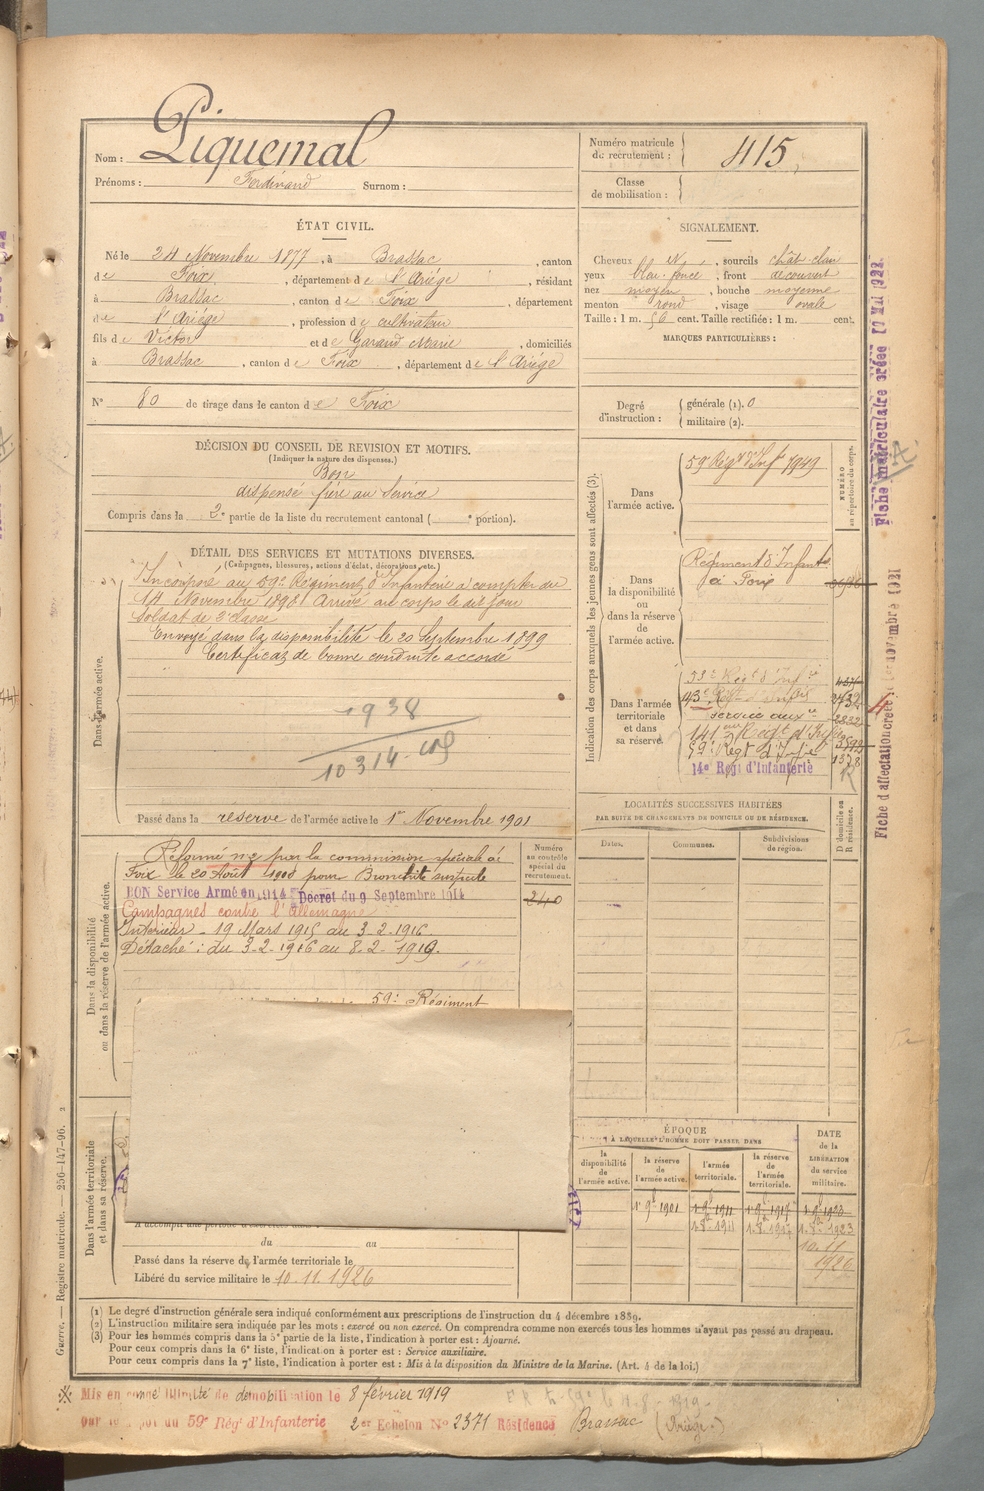 Nom : Piquemal
Prénoms : Ferdinand Surnom :
Numéro matricule de recrutement : 415
Classe de mobilisation :
ÉTAT CIVIL.
Né le 24 Novembre 1877, à Brassac, canton
de Foix, département de l'Ariège, résidant
à Brassac, canton de Foix, département
de l'Ariège, profession de cultivateur
fils de Victor et de Garaud Marie, domiciliés
à Brassac, canton de Foix, département de l'Ariège
N° 80 de tirage dans le canton de Foix
SIGNALEMENT.
Cheveux N, sourcils chât. clair
yeux bleu foncé, front découvert
nez moyen, bouche moyenne
menton rond, visage ovale
Taille : 1 m. 56 cent. Taille rectifiée : 1 m. cent.
MARQUES PARTICULIÈRES :
Degré d'instruction : générale (1). 0
militaire (2).
DÉCISION DU CONSEIL DE REVISION ET MOTIFS.
(Indiquer la nature des dispenses.)
Bon
dispensé frère au Service
Compris dans la 2e partie de la liste du recrutement cantonal ( e portion).
DÉTAIL DES SERVICES ET MUTATIONS DIVERSES.
(Campagnes, blessures, actions d'éclat, décorations, etc.)
Dans l'armée active.
Incorporé au 59e Régiment d'Infanterie à compter du
14 Novembre 1898 Arrivé au corps le dit jour
Soldat de 2e classe
Envoyé dans la disponibilité le 20 Septembre 1899
Certificat de bonne conduite accordé
1938
10314
Passé dans la réserve de l'armée active le 1er Novembre 1901
Dans la disponibilité ou dans la réserve de l'armée active.
Réformé n°2 par la commission spéciale de
Foix le 20 Août 1908 pour Bronchite
BON Service Armé en 1914 Décret du 9 Septembre 1914
Campagnes contre l'Allemagne
Intérieur - 19 Mars 1915 au 3-2-1916.
Détaché : du 3-2-1916 au 8-2-1919.
59e Régiment
Numéro au contrôle spécial du recrutement.
240
Indication des corps auxquels les jeunes gens sont affectés (3).
NUMÉRO au répertoire du corps.
Dans l'armée active.
59e Régt d'Inf 1949
Dans la disponibilité ou dans la réserve de l'armée active.
Régiment d'Infanterie
de Foix
Dans l'armée territoriale et dans sa réserve.
Service auxre
59e Régt d'Infie
14e Régt d'Infanterie
LOCALITÉS SUCCESSIVES HABITÉES
PAR SUITE DE CHANGEMENTS DE DOMICILE OU DE RÉSIDENCE.
Dates. Communes. Subdivisions de région. D domicile ou R résidence.
ÉPOQUE
À LAQUELLE L'HOMME DOIT PASSER DANS
DATE de la LIBÉRATION du service militaire.
la disponibilité de l'armée active. la réserve de l'armée active. l'armée territoriale. la réserve de l'armée territoriale.
1.9bre 1901 1.9bre 1911 1.9bre 1917 1.9bre 1923
1.8bre 1911 1.8bre 1917 1.8bre 1923
10.11
1926
Dans l'armée territoriale et dans sa réserve.
A accompli une période d'exercices dans
du au
Passé dans la réserve de l'armée territoriale le
Libéré du service militaire le 10.11.1926
(1) Le degré d'instruction générale sera indiqué conformément aux prescriptions de l'instruction du 4 décembre 1889.
(2) L'instruction militaire sera indiquée par les mots : exercé ou non exercé. On comprendra comme non exercés tous les hommes n'ayant pas passé au drapeau.
(3) Pour les hommes compris dans la 5e partie de la liste, l'indication à porter est : Ajourné.
Pour ceux compris dans la 6e liste, l'indication à porter est : Service auxiliaire.
Pour ceux compris dans la 7e liste, l'indication à porter est : Mis à la disposition du Ministre de la Marine. (Art. 4 de la loi.)
Guerre. — Registre matricule. — 256-147-96. 2
Mis en congé illimité de démobilisation le 8 février 1919
par le dépôt du 59e Rég' d'Infanterie 2er Echelon N° 2371 Résidence Brassac (Ariège.)
Fiche matriculaire créée 17 Mai 1922.
Fiche d'affectation créée le novembre 1921